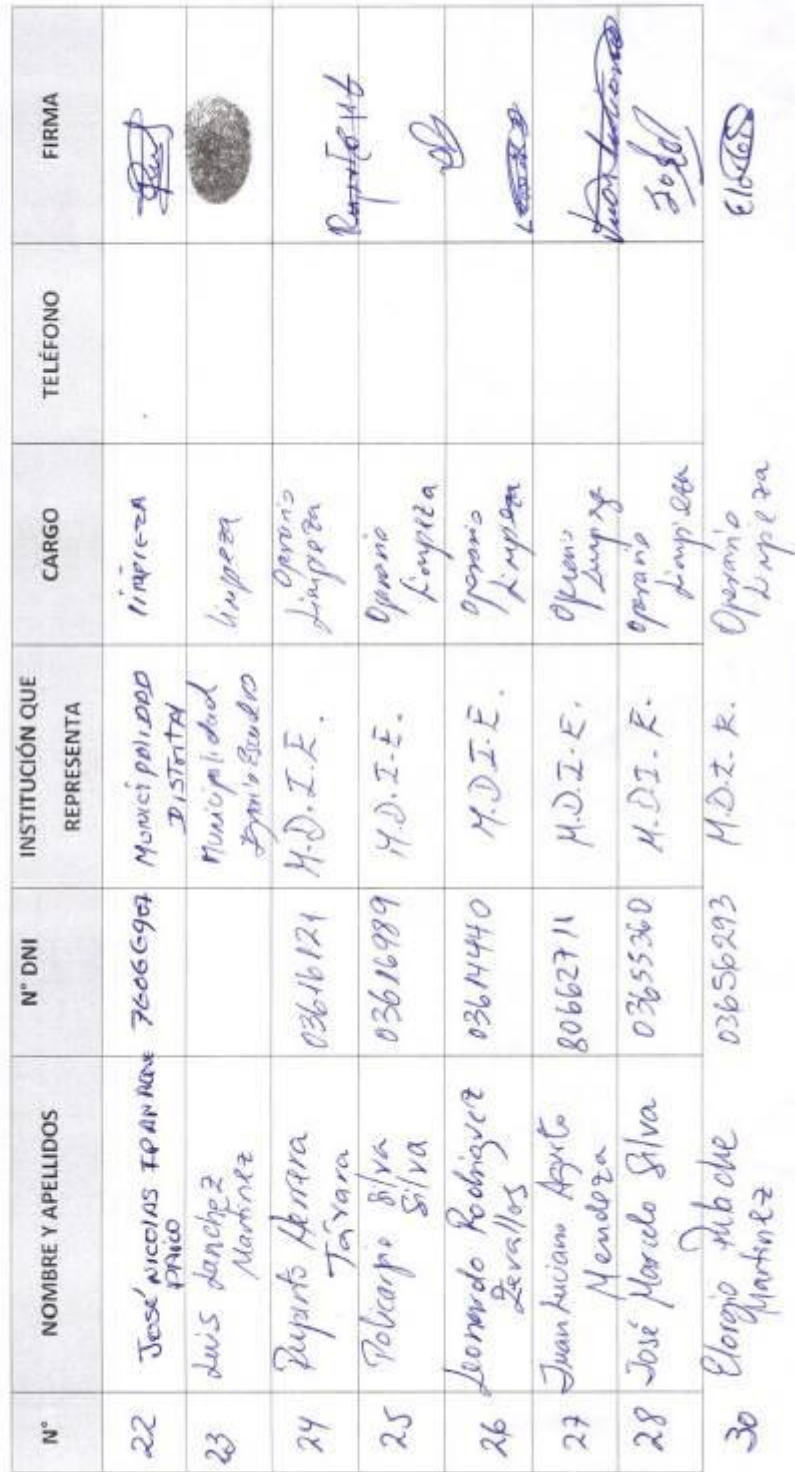 N° NOMBRE Y APELLIDOS N° DNI INSTITUCIÓN QUE REPRESENTA CARGO TELÉFONO FIRMA
22 José NICOLAS PAICO Municipalidad Distrital limpieza
23 Luis Sanchez Martinez Municipalidad limpeza
24 Ruperto Herrera Távara 03616121 M.D.I.E. Operario Limpeza
25 Policarpio Silva Silva 03616989 M.D.I.E. Operario Limpeza
26 Leonardo Rodriguez Zevallos 03614440 M.D.I.E. Operario Limpeza
27 Juan Luciano Mendoza 80662711 M.D.I.E. Operario
28 José Marcelo Silva 03655360 M.D.I.E. Operario Limpieza
30 Martinez 03656293 M.D.I.E. Operario Limpeza